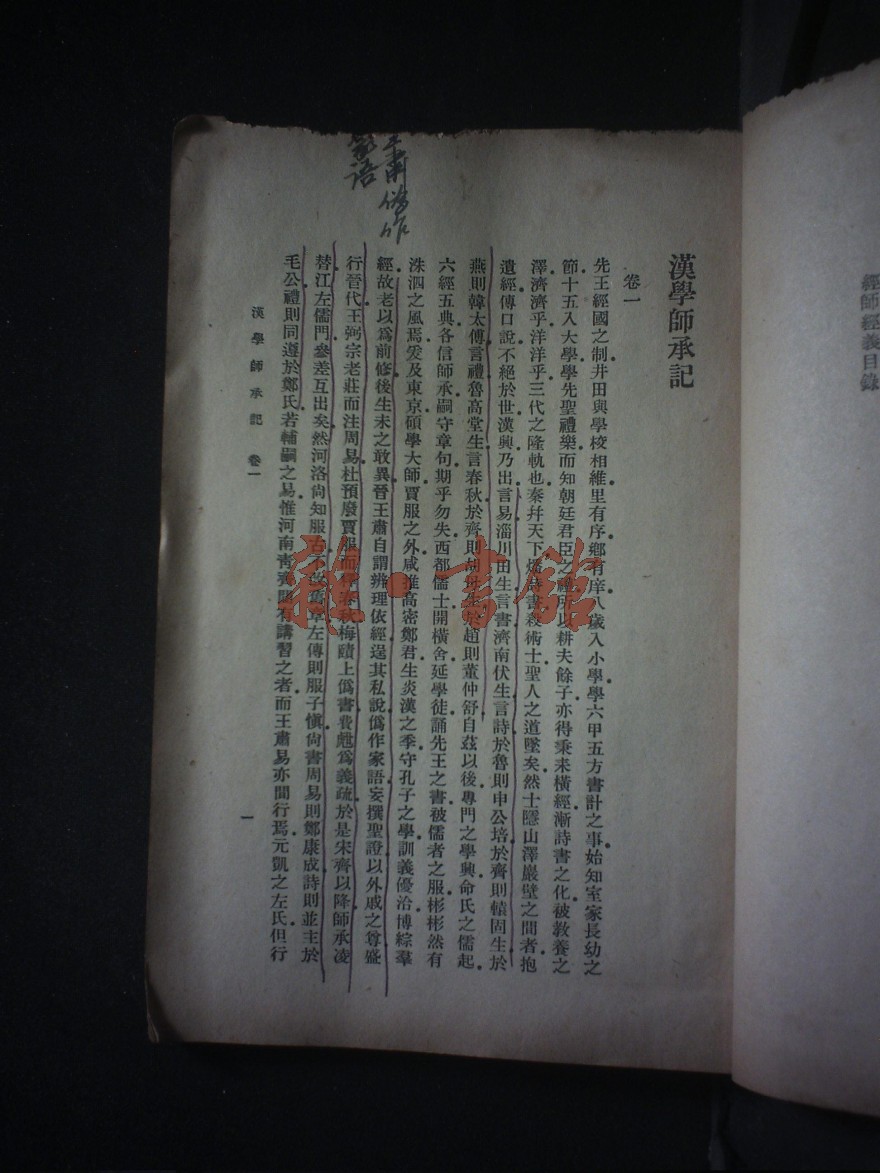 漢學師承記
卷一
先王經國之制井田與學校相維里有序鄉有庠八歲入小學學六甲五方書計之事始知室家長幼之
節十五入大學學先聖禮樂而知朝廷君臣之禮所以耕夫餘子亦得秉耒橫經漸詩書之化被敎養之
澤濟濟乎洋洋乎三代之隆軌也秦幷天下燔詩書殺術士聖人之道墜矣然士隱山澤巖壁之間者抱
遺經傳口說不絕於世漢興乃出言易淄川田生言書濟南伏生言詩於魯則申公培於齊則轅固生於
燕則韓太傅言禮魯高堂生言春秋於齊則胡母生於趙則董仲舒自茲以後專門之學興命氏之儒起
六經五典各信師承嗣守章句期乎勿失西都儒士開橫舍延學徒誦先王之書被儒者之服彬彬然有
洙泗之風焉爰及東京碩學大師賈服之外咸推高密鄭君生炎漢之季守孔子之學訓義優洽博綜羣
經故老以爲前修後生未之敢異晉王肅自謂辨理依經逞其私說僞作家語妄撰聖證以外戚之尊盛
行晉代王弼宗老莊而注周易杜預廢賈服而釋春秋梅賾上僞書費甝爲義疏於是宋齊以降師承凌
替江左儒門參差互出矣然河洛尙知服古不改舊章左傳則服子愼尙書周易則鄭康成詩則並主於
毛公禮則同遵於鄭氏若輔嗣之易惟河南靑齊間有講習之者而王肅易亦間行焉元凱之左氏但行
漢學師承記 卷一
一
王肅僞作
家語
經師經義目錄
雜·書館